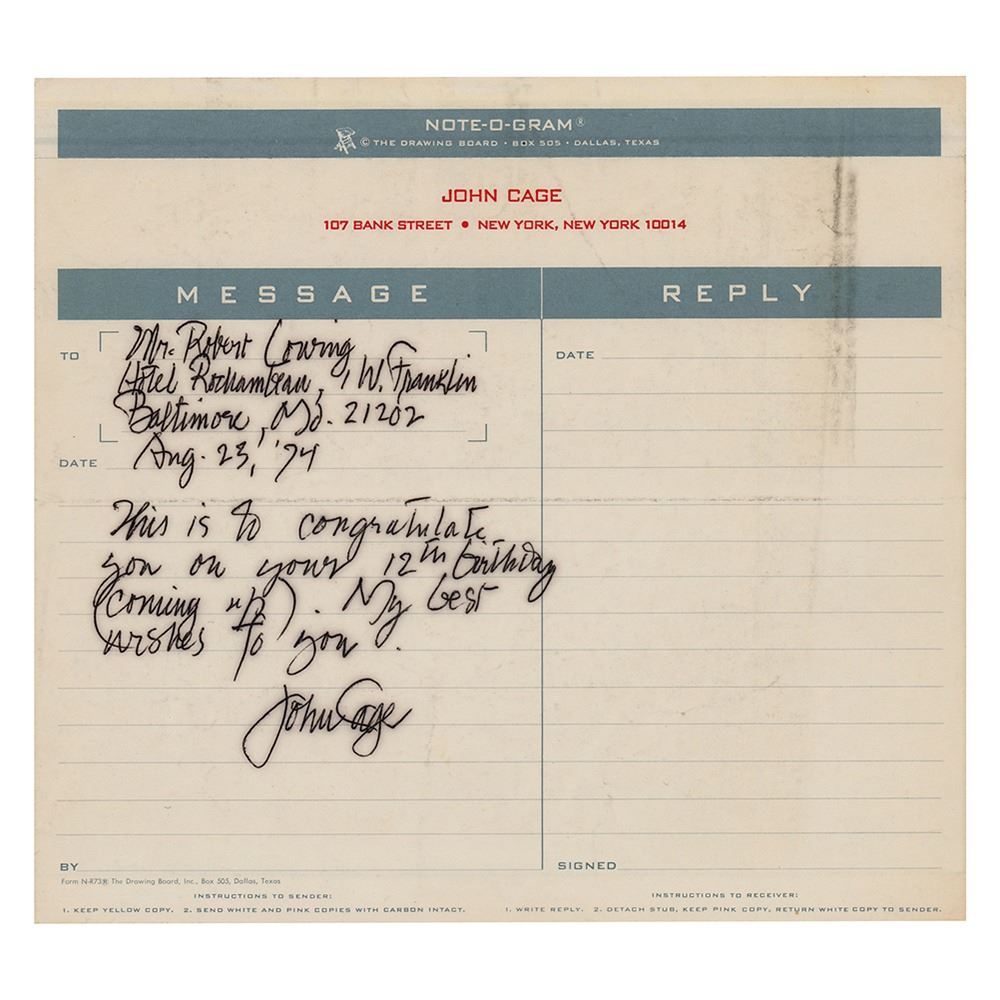 NOTE-O-GRAM®
© THE DRAWING BOARD • BOX 505 • DALLAS, TEXAS
JOHN CAGE
107 BANK STREET • NEW YORK, NEW YORK 10014
MESSAGE
TO
Mr. Robert Cowing
Hotel Rochambeau, 1 W. Franklin
Baltimore, Md. 21202
DATE
Aug. 23, '74
This is to congratulate
you on your 12th birthday
(coming up). My best
wishes to you.
John Cage
BY
Form N-R73® The Drawing Board, Inc., Box 505, Dallas, Texas
INSTRUCTIONS TO SENDER:
1. KEEP YELLOW COPY. 2. SEND WHITE AND PINK COPIES WITH CARBON INTACT.
REPLY
DATE
SIGNED
INSTRUCTIONS TO RECEIVER:
1. WRITE REPLY. 2. DETACH STUB, KEEP PINK COPY, RETURN WHITE COPY TO SENDER.